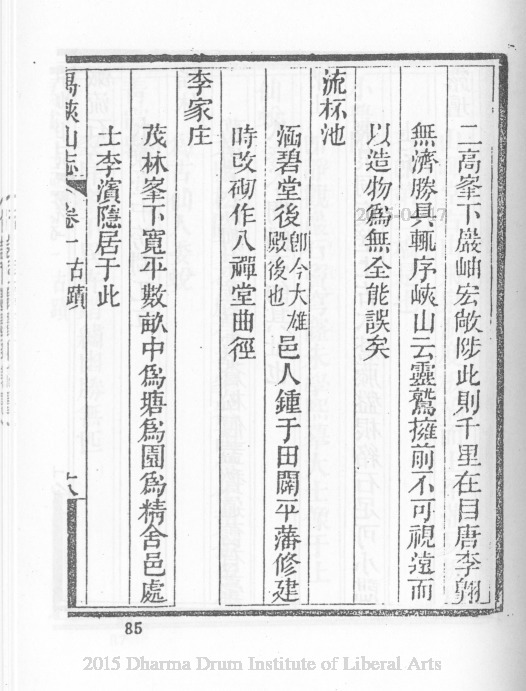 二高峯下巖岫宏敞陟此則千里在目唐李翔
無濟勝具輒序峽山云靈鷲擁前不可視遠而
以造物爲無全能誤矣
流杯池
涵碧堂後卽今大雄殿後也邑人鍾于田闢平藩修建
時改砌作八禪堂曲徑
李家庄
茂林峯下寬平數畝中爲塘爲園爲精舍邑處
士李濱隱居于此
禺峽山志 卷一 古蹟
85
2015 Dharma Drum Institute of Liberal Arts